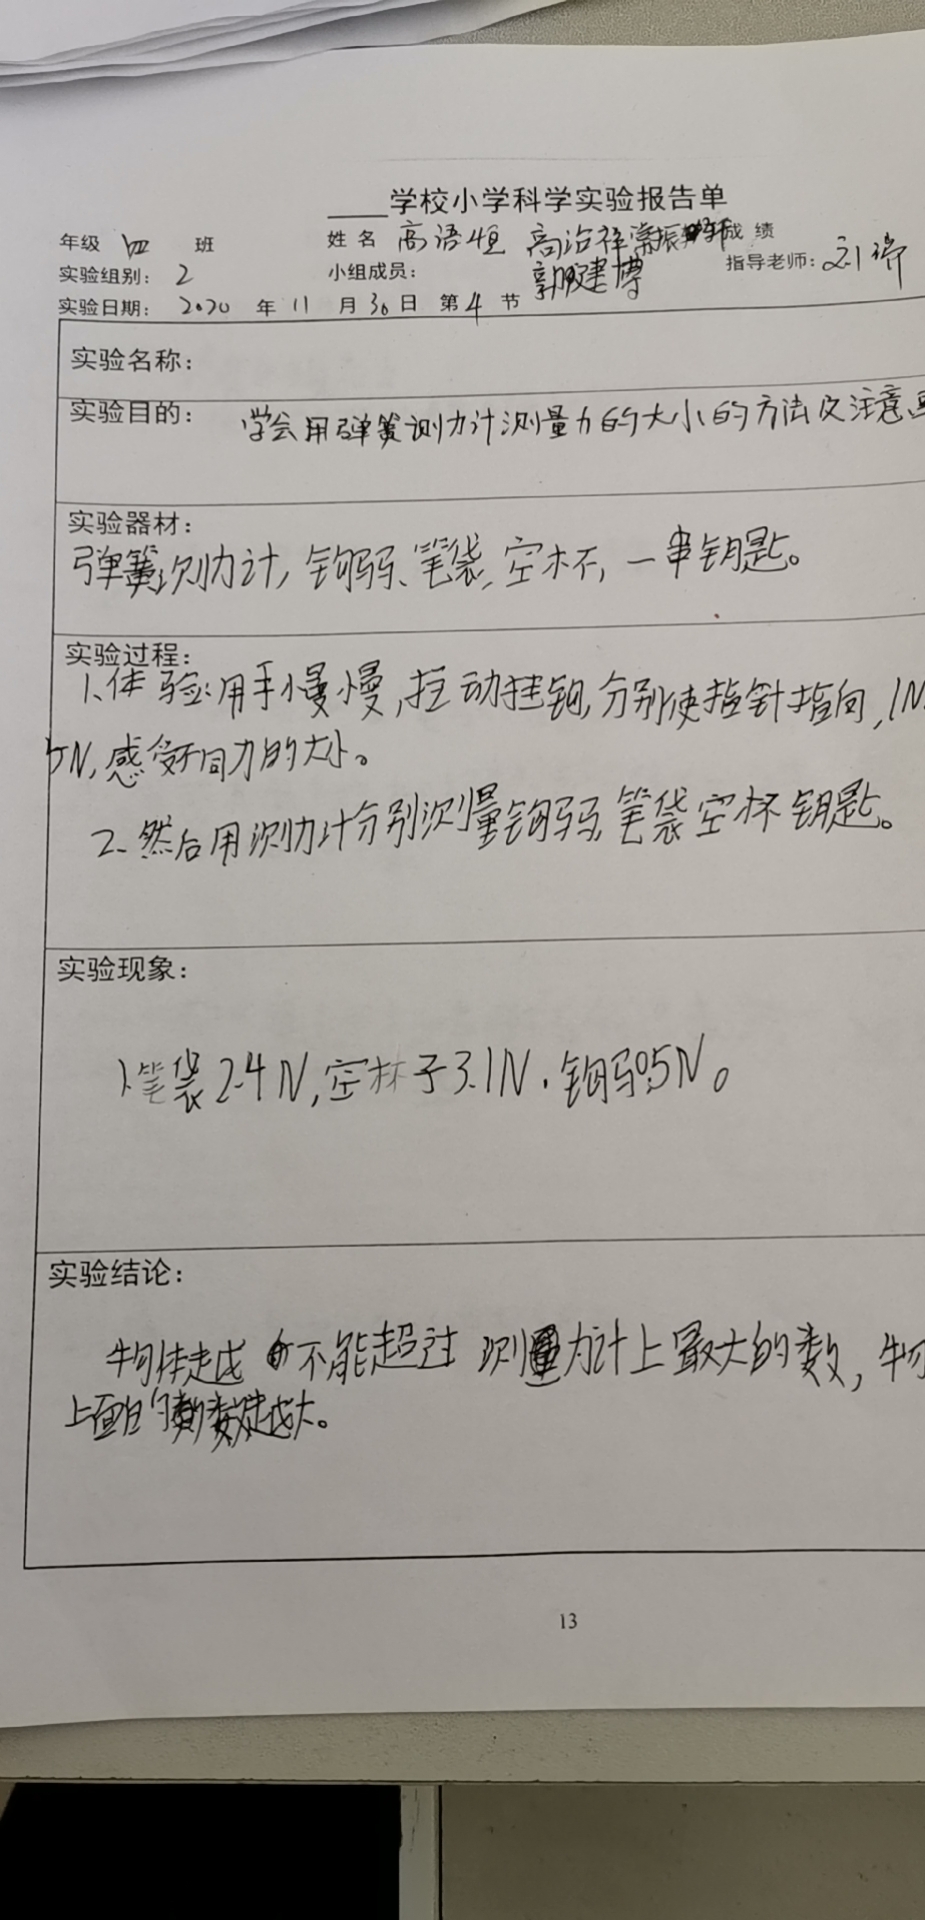 ____学校小学科学实验报告单
年级 四 班 姓名 高语恒 高治祥 常振 成绩
实验组别: 2 小组成员: 郭建博 指导老师: 刘瑞
实验日期: 2020 年 11 月 30 日 第 4 节
实验名称:
实验目的: 学会用弹簧测力计测量力的大小的方法及注意
实验器材:
弹簧测力计, 钩码、笔袋、空杯, 一串钥匙。
实验过程:
1、体验:用手慢慢,拉动挂钩,分别使指针指向,1N
5N,感受不同力的大小。
2、然后用测力计分别测量钩码,笔袋空杯钥匙。
实验现象:
1、笔袋2.4N,空杯子3.1N、钩码0.5N。
实验结论:
物体越 不能超过测量力计上最大的数,物
上面的数越大。
13